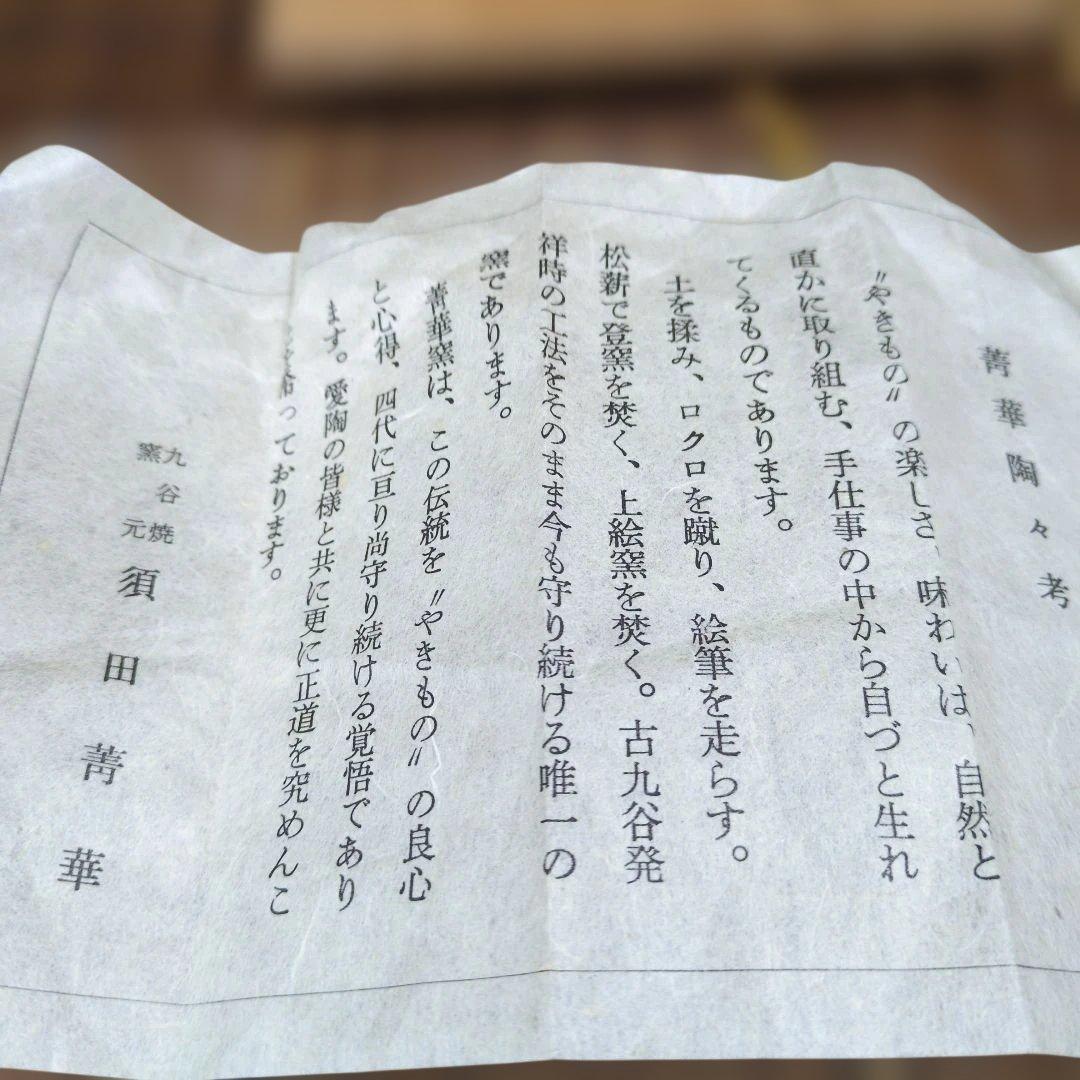 菁華陶々考
〝やきもの〟の楽しさ、味わいは、自然と
直かに取り組む、手仕事の中から自づと生れ
てくるものであります。
土を揉み、ロクロを蹴り、絵筆を走らす。
松薪で登窯を焚く、上絵窯を焚く。古九谷発
祥時の工法をそのまま今も守り続ける唯一の
窯であります。
菁華窯は、この伝統を〝やきもの〟の良心
と心得、四代に亘り尚守り続ける覚悟であり
ます。愛陶の皆様と共に更に正道を究めんこ
っております。
九谷焼
窯元
須田菁華